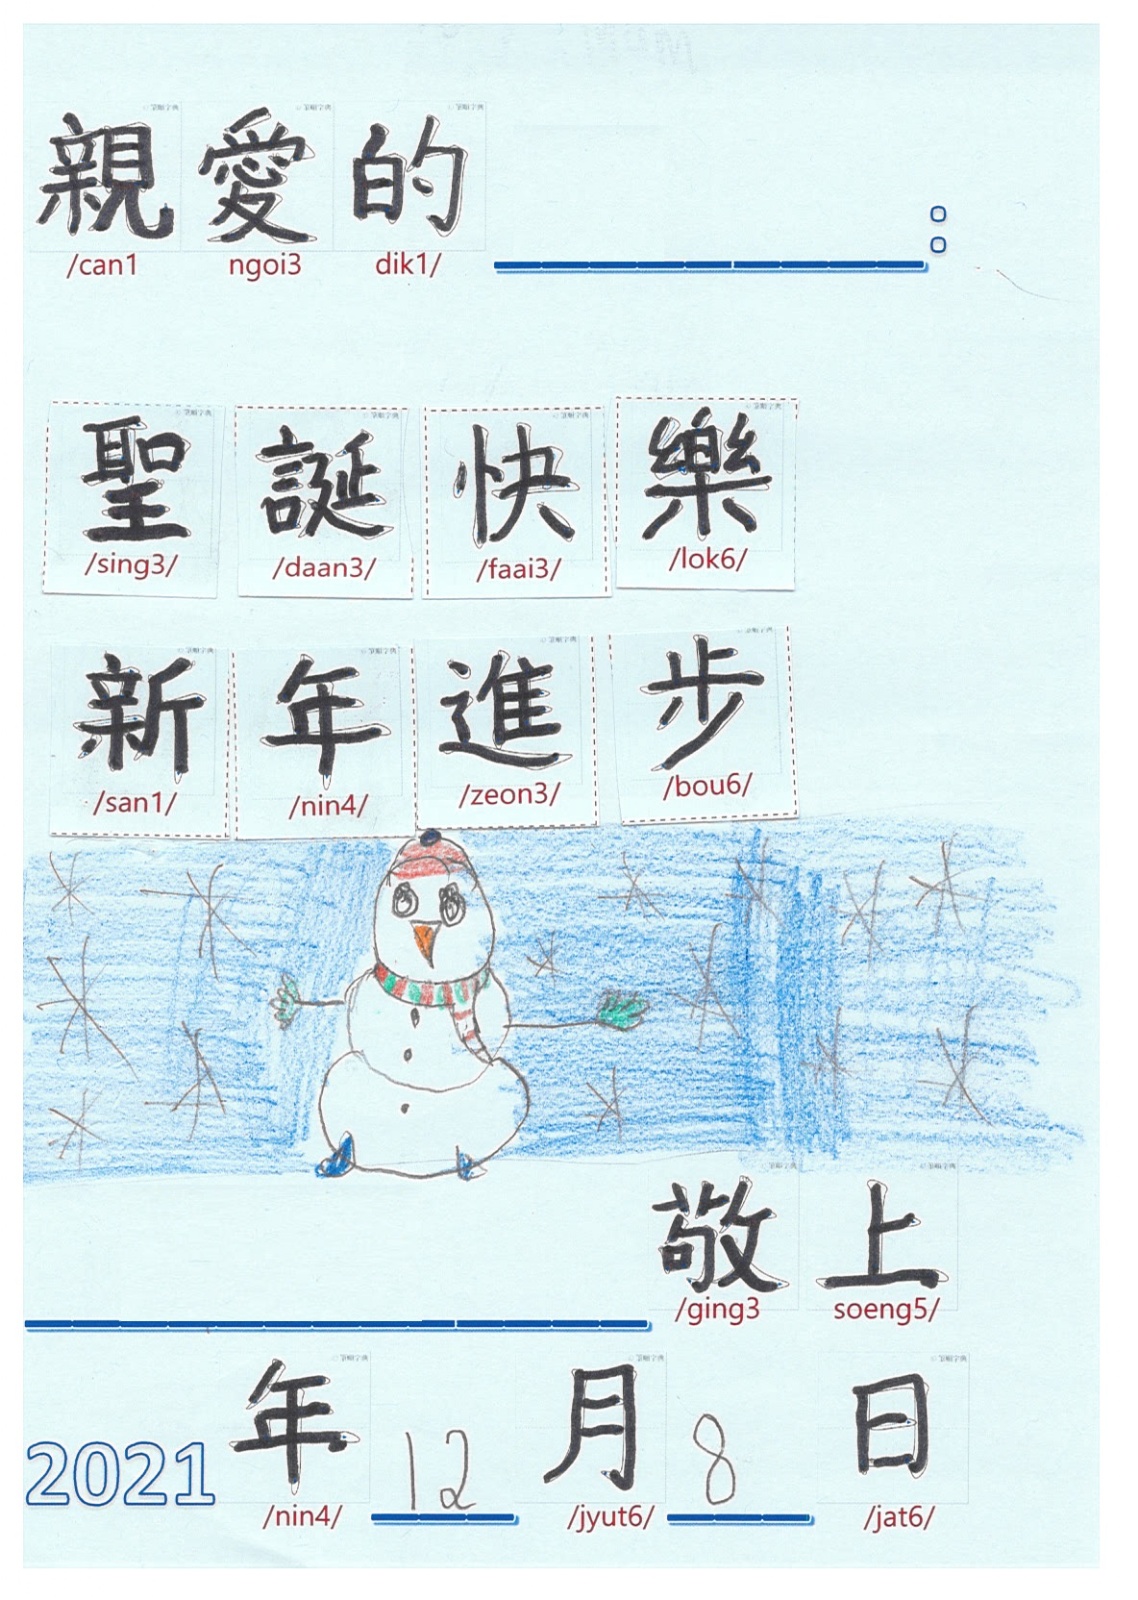 親愛的 :
/can1 ngoi3 dik1/
聖誕快樂
/sing3/ /daan3/ /faai3/ /lok6/
新年進步
/san1/ /nin4/ /zeon3/ /bou6/
敬上
/ging3 soeng5/
2021年12月8日
/nin4/ /jyut6/ /jat6/